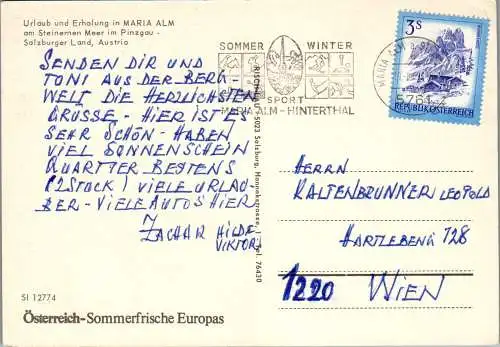 Urlaub und Erholung in MARIA ALM
am Steinernen Meer im Pinzgau -
Salzburger Land, Austria
SENDEN DIR UND
TONI AUS DER BERG-
WELT DIE HERZLICHSTEN
GRÜSSE - HIER IST ES
SEHR SCHÖN - HABEN
VIEL SONNENSCHEIN
QUARTIER BESTENS
(2 STOCK) VIELE URLAU-
BER - VIELE AUTOS HIER
ZACHAR HILDE
VIKTOR
SI 12774
Österreich-Sommerfrische Europas
5023 Salzburg,
Tel. 76430
SOMMER WINTER
SPORT
MARIA ALM-HINTERTHAL
MARIA ALM
5761
3 S
REPUBLIK ÖSTERREICH
HERRN
KALTENBRUNNER LEOPOLD
HARTLEBENG 128
1220 WIEN